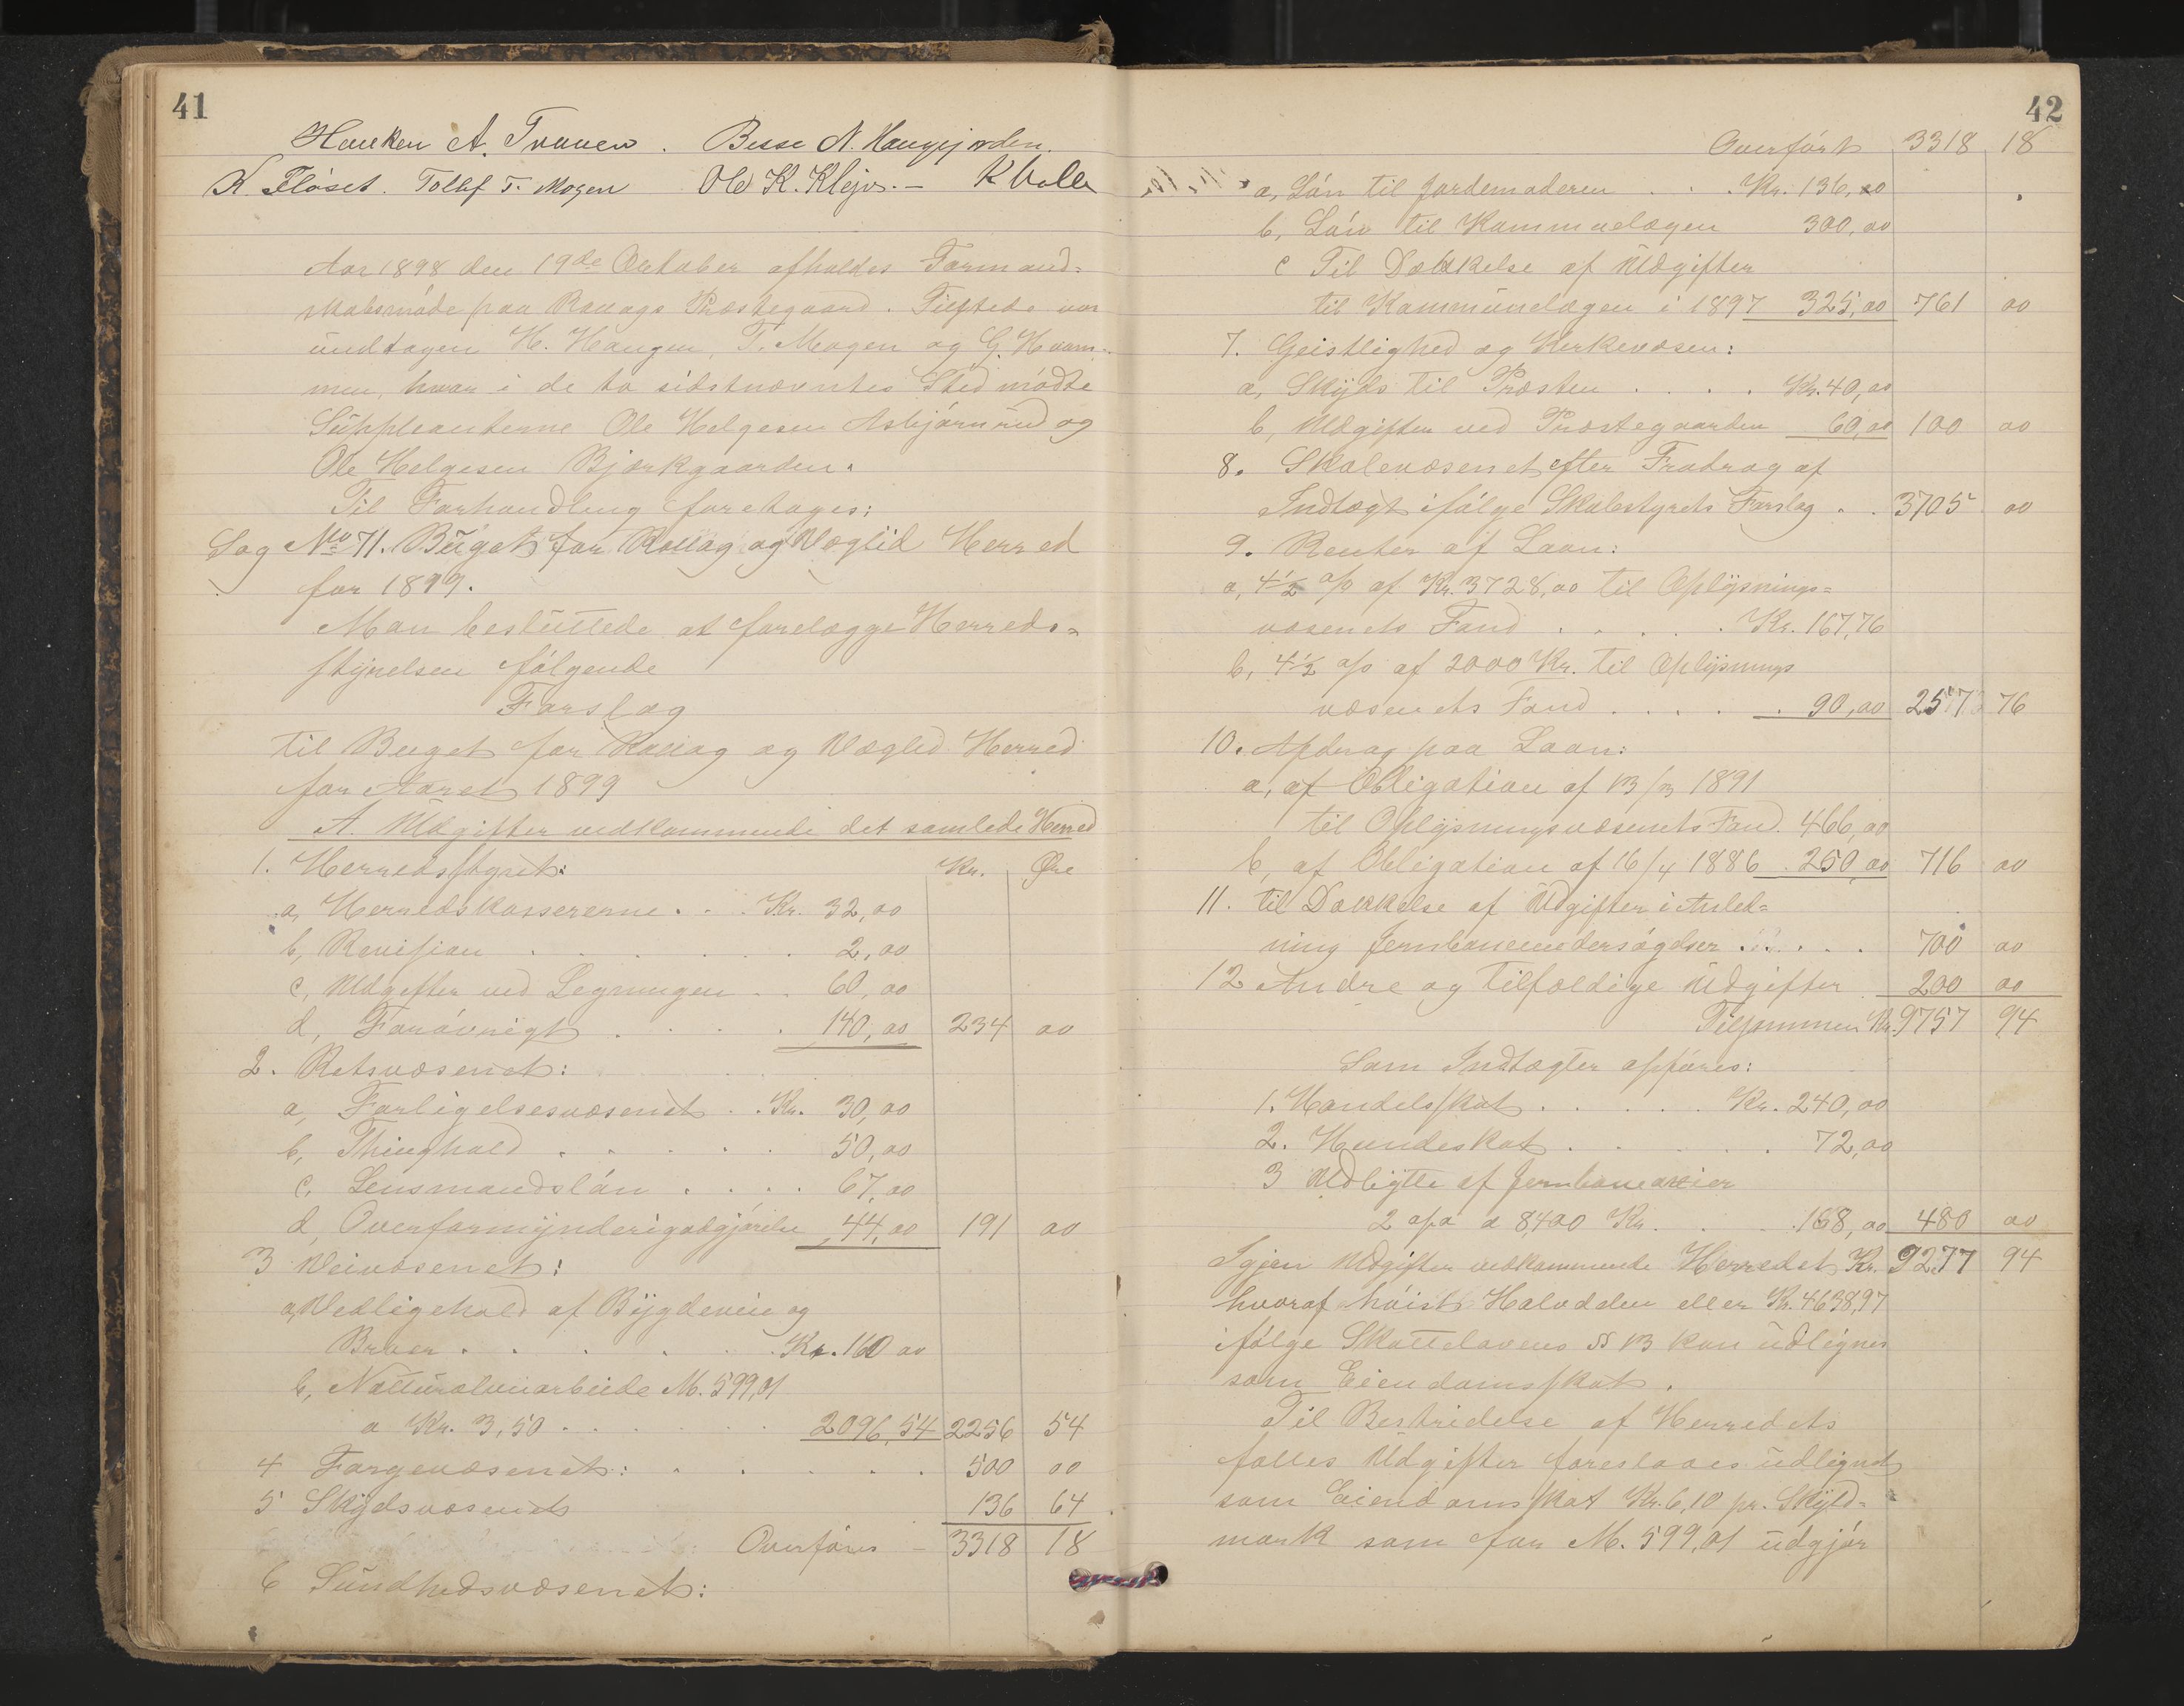 41
Haaken A. Traaen. Besse N. Haugejorden.
K Fløset. Tollef T. Mogen Ole K. Klejv.— K Volle
Aar 1898 den 19de Oktober afholdes Formand=
skabsmøde paa Rollags Præstegaard. Tilstede var
undtagen H. Haugen, T. Mogen og G. Hvam-
men, hvor i de to sidstnævntes Sted mødte
Suppleanterne Ole Helgesen Asbjørnrud og
Ole Helgesen Bjørkgaarden.
Til Forhandling foretages:
Sag No 71. Buget for Rollag og Væglid Herred
for 1899.
Man besluttede at forelægge Herreds=
styrelsen følgende
Forslag
til Buget for Rollag og Væglid Herred
for Aaret 1899
A. Udgifter vedkommende det samlede Herred
1. Herredsstyret: Kr. Øre
a, Herredskassererne . . . Kr. 32,00
b, Revision . . . . . . 2,00
c, Udgifter ved Legningen . . 60,00
d, Forøvrigt . . . . 140,00 234 00
2. Retsvæsenet:
a, Forligelsesvæsenet . . Kr. 30,00
b, Thinghold . . . . . 50,00
c. Lensmandsløn . . . . 67,00
d, Overformynderigodgjørelse 44,00 191 00
3 Veivæsenet:
a, Vedligehold af Bygdeveie og
Broer . . . . . . Kr. 160 00
b, Naturalveiarbeide M. 599,01
a Kr. 3,50 . . . . . 2096,54 2256 54
4 Forgevæsenet: . . . . . 500 00
5 Skydsvæsenet 136 64
Overføres — 3318 18
6 Sundhedsvæsenet:
42
Overført 3318 18
a, Løn til Jordemoderen . . . Kr. 136,00
b, Løn til Kommuelægen 300,00
c Til Dækkelse af Udgifter
til Kommunelægen i 1897 325,00 761 00
7. Geistlighed og Kerkevæsen:
a, Skyds til Præsten . . . . Kr. 40,00
b, Udgifter ved Præstegaarden 60,00 100 00
8. Skolevæsenet efter Fradrag af
Indtægt ifølge Skolestyrets Forslag . . 3705 00
9. Renter af Laan:
a, 4 1/2 o/o af Kr. 3728,00 til Oplysnings=
væsenets Fond . . . . . . Kr. 167,76
b, 4 1/2 o/o af 2000 Kr. til Oplysnings
væsenets Fond . . . . . . 90,00 257 76
10. Afdrag paa Laan:
a, af Obligation af 13/3 1891
til Oplysningsvæsenets Fond. 466,00
b, af Obligation af 16/4 1886 . 250,00 716 00
11. til Dækkelse af Udgifter i Anled=
ning Jernbaneundersøgelser . . . . . 700 00
12 Andre og tilfældige Udgifter 200 00
Tilsammen Kr. 9757 94
Som Indtægter opføres:
1. Handelsskat . . . . . . Kr. 240,00
2. Hundeskat . . . . . . 72,00
3 Udbytte af Jernbaneaxier
2 o/o a 8400 Kr. . . . 168,00 480 00
Igjen Udgifter vedkommende Herredet Kr. 9277 94
hvoraf høist Halvdelen eller Kr. 4638,97
ifølge Skattelovens §§ 13 kan udlignes
som Eiendomsskat.
Til Bestridelse af Herredets
fælles Udgifter foreslaaes udlignet
som Eiendomsskat Kr. 6,10 pr. Skyld=
mark som for M. 599,01 udgjør